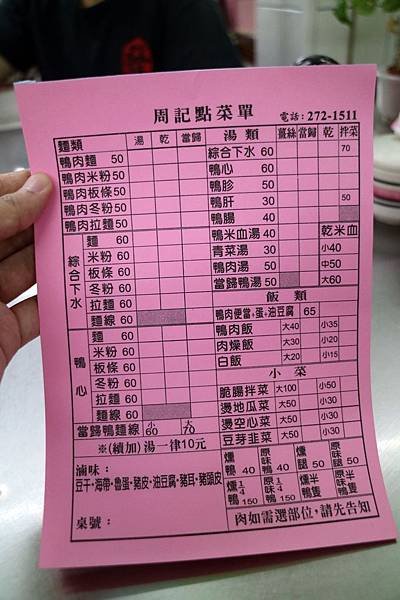 周記點菜單
電話：272-1511
麵類 湯 乾 當歸
鴨肉麵 50
鴨肉米粉 50
鴨肉板條 50
鴨肉冬粉 50
鴨肉拉麵 50
綜合下水
麵 60
米粉 60
板條 60
冬粉 60
拉麵 60
麵線 60
鴨心
麵 60
米粉 60
板條 60
冬粉 60
拉麵 60
麵線 60
當歸鴨麵線 小60 大70
※(續加)湯一律10元
滷味：
豆干、海帶、魯蛋、豬皮、油豆腐、豬耳、豬頭皮
桌號：
湯類 薑絲 當歸 乾 拌菜
綜合下水 60 70
鴨心 60
鴨胗 50
鴨肝 30 50
鴨腸 40
鴨米血湯 40 乾米血
青菜湯 30 小40
鴨肉湯 50 中50
當歸鴨湯 50 大60
飯類
鴨肉便當+蛋+油豆腐 65
鴨肉飯 大40 小35
肉燥飯 大30 小20
白飯 大20 小15
小菜
脆腸拌菜 大100 小50
燙地瓜菜 大50 小30
燙空心菜 大50 小30
豆芽韭菜 大50 小30
燻鴨 40 原味鴨 40 燻腿 50 原味腿 50
燻1/4鴨 150 原味1/4鴨 150 燻半隻鴨 原味半隻鴨
肉如需選部位，請先告知